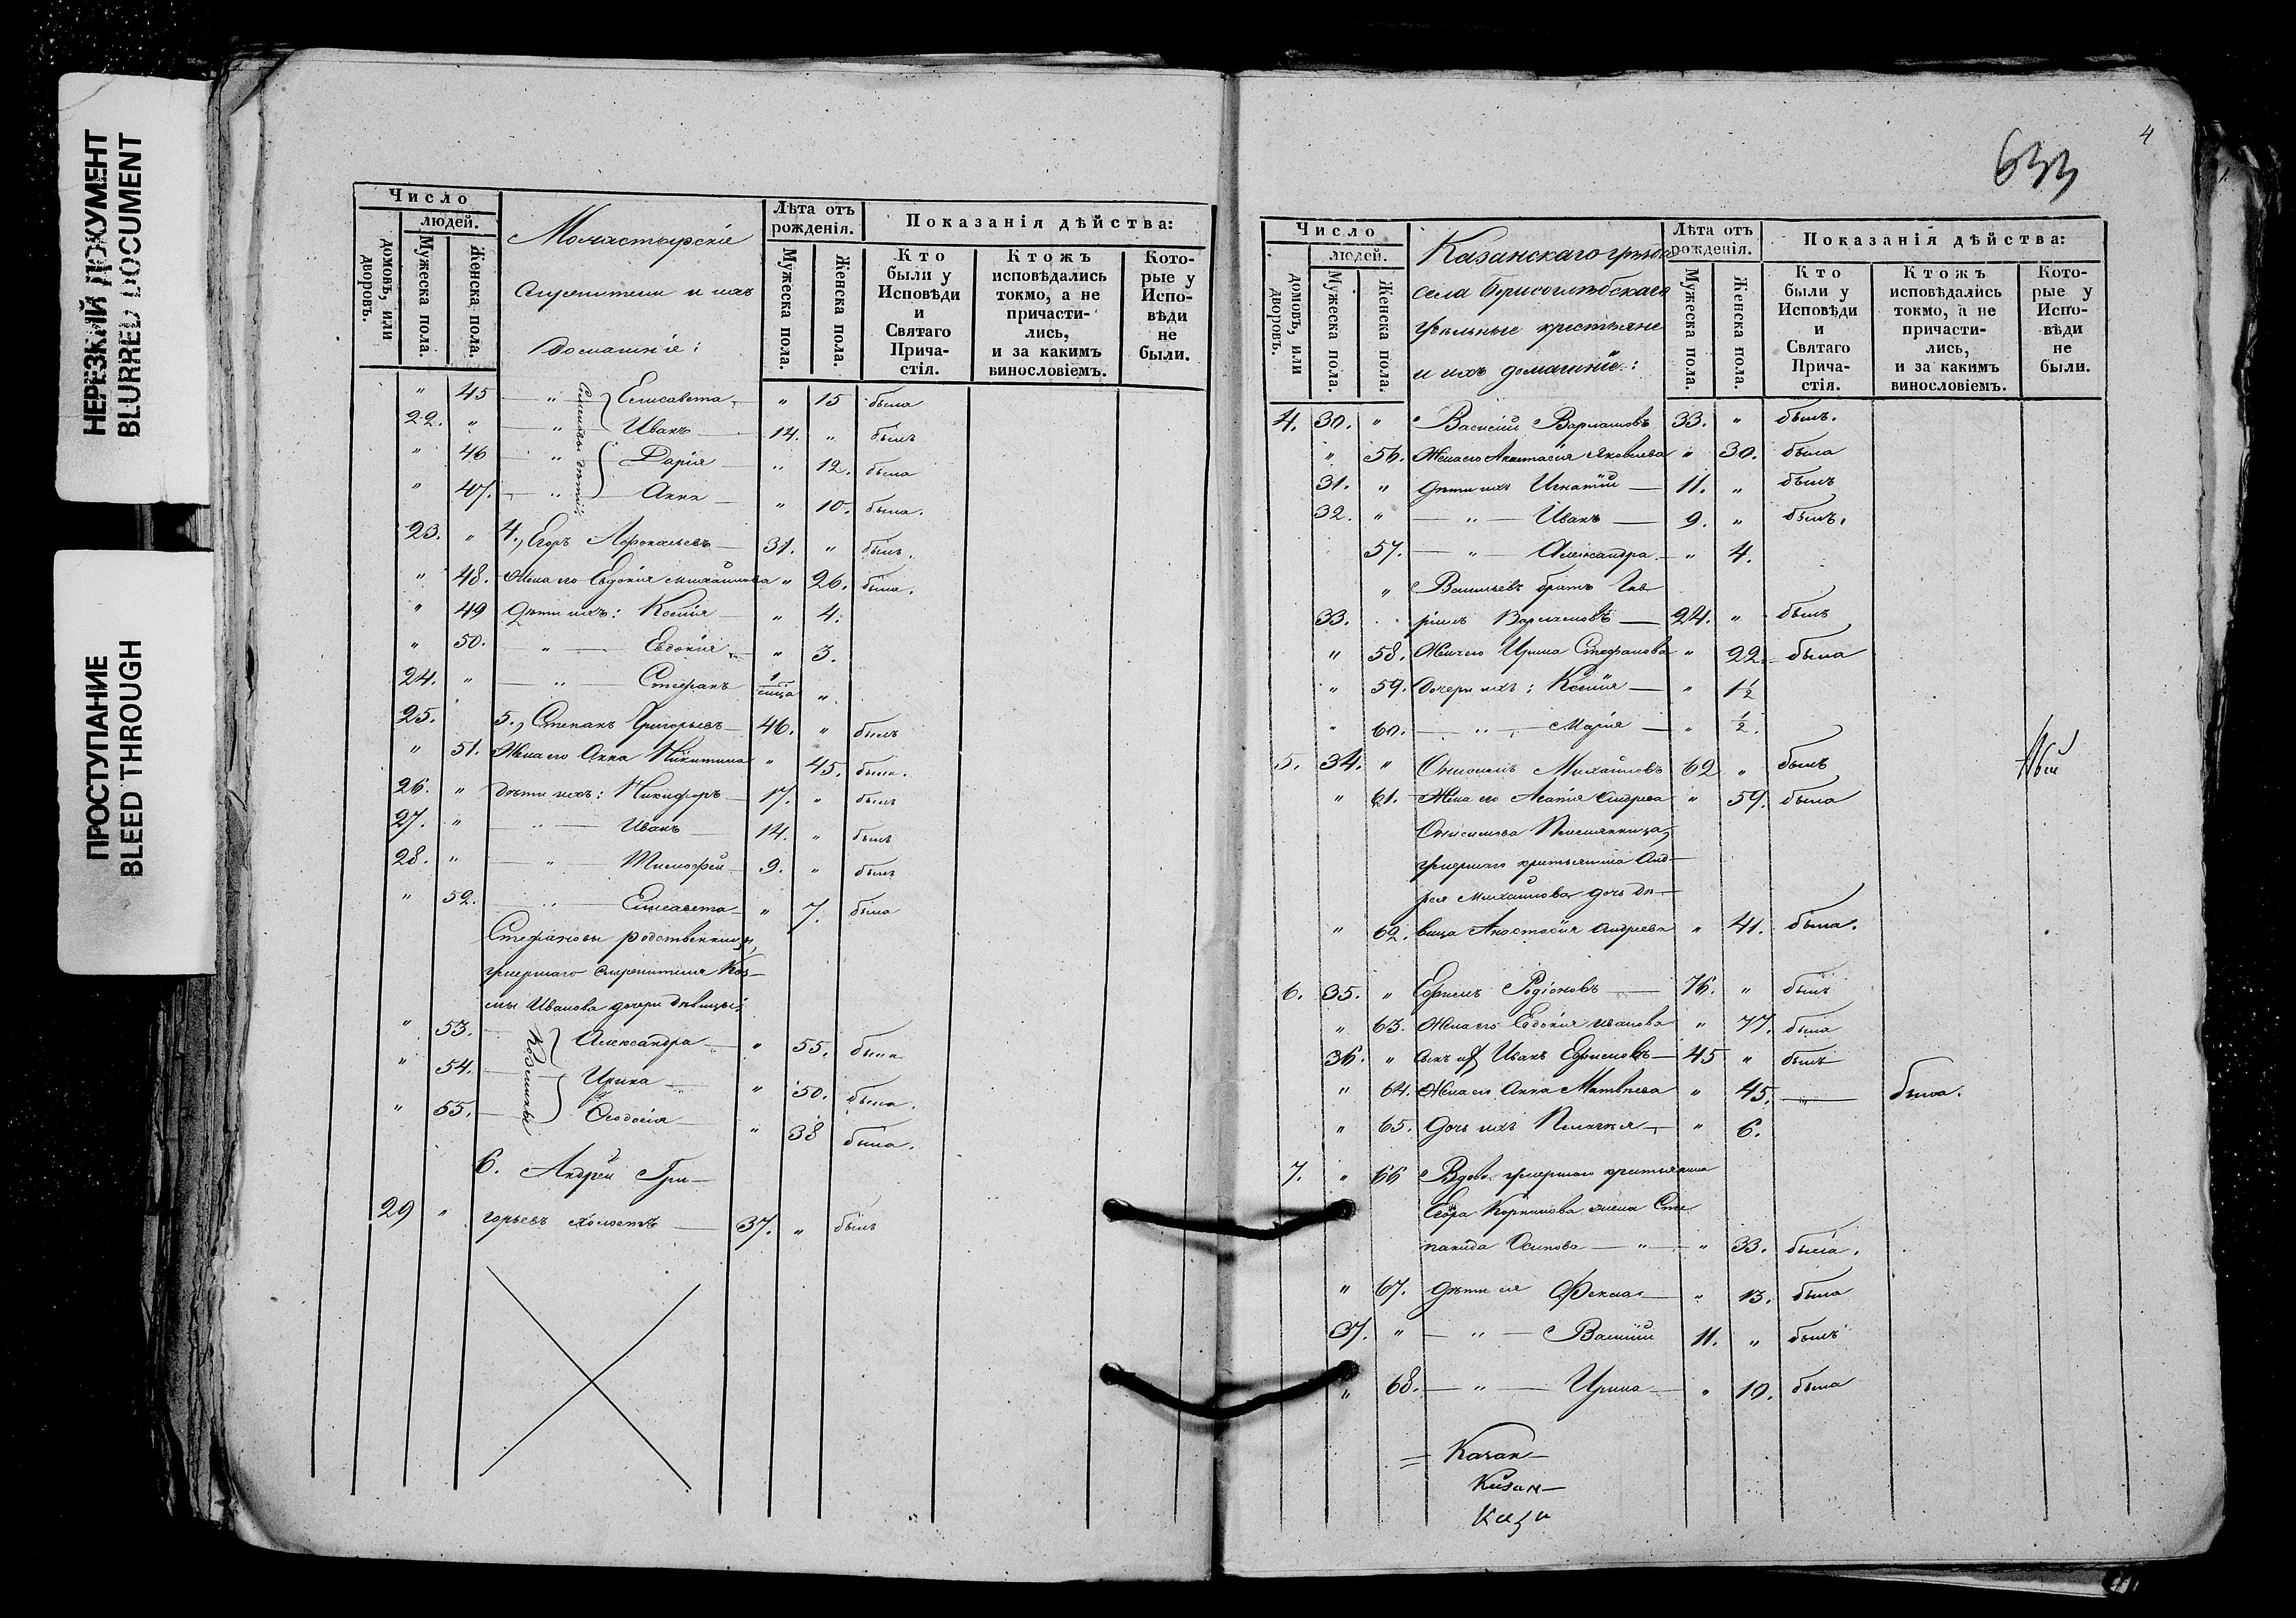 НЕРЕЗКИЙ ДОКУМЕНТ
BLURRED DOCUMENT
ПРОСТУПАНИЕ
BLEED THROUGH
Число
людей.
домовъ, или дворовъ.
Мужеска пола.
Женска пола.
Монастырскіе
служители и ихъ
домашніе:
Лѣта отъ рожденія.
Мужеска пола.
Женска пола.
Показанія дѣйства:
Кто были у Исповѣди и Святаго Прича-стія.
Ктожъ исповѣдались токмо, а не причасти-лись, и за какимъ винословіемъ.
Кото-рые у Испо-вѣди не были.
" 45 — " — Елисавета " 15 была
22. " — " — Иванъ — 14. " былъ
" 46 — " — Дарія — " 12. была
" 47. — " — Анна — " 10. была.
23. " 4., Егоръ Афонасьевъ — 31. " былъ.
" 48. Жена его Евдокія Михайлова " 26. была.
" 49 Дѣти ихъ: Ксенія — " 4.
" 50. — " — Евдокія — " 3.
24. " — " — Стефанъ 1 "
25. 5., Степанъ Григорьевъ — 46. " былъ
" 51. Жена его Анна Никитина " 45. была.
26. " Дѣти ихъ: Никифоръ — 17. " былъ
27. " — " — Иванъ — 14. " былъ
28. " — " — Тимофей — 9. " былъ
" 52. — " — Елисавета — " 7. была
Стефановы родственницы,
умершаго служителя Коз-
мы Иванова дочери дѣвицы:
" 53. Александра — " 55. была
" 54. — Ирина — " 50. была.
" 55. — Ѳеодосія — " 38 была.
Козмины
6. Андрей Гри-
29 " горьевъ холостъ — 37. " былъ
4
633
Число
людей.
домовъ, или дворовъ.
Мужеска пола.
Женска пола.
Казанскаго
села Борисоглѣбскаго
удѣльные крестьяне
и ихъ домашніе:
Лѣта отъ рожденія.
Мужеска пола.
Женска пола.
Показанія дѣйства:
Кто были у Исповѣди и Святаго Прича-стія.
Ктожъ исповѣдались токмо, а не причасти-лись, и за какимъ винословіемъ.
Кото-рые у Испо-вѣди не были.
4. 30. " Василій Варламовъ 33. " былъ.
" 56. Жена его Анастасія Яковлева " 30. была
31. " Дѣти ихъ Игнатій — 11. " былъ
32. " — " — Иванъ — 9. " былъ.
57. — " — Александра — " 4.
" Васильевъ братъ Гав-
33. ріилъ Варламовъ — 24. " былъ
" 58. Жена его Ирина Стефанова " 22. была
" 59. Дочери ихъ: Ксенія — " 1½
" 60. — " — Марія — " ½.
5. 34. " Онисимъ Михайловъ 62 " былъ
" 61. Жена его Агафія Андреева " 59. была
Онисимова племянница,
умершаго крестьянина Анд-
рея Михайлова дочь дѣ-
" 62. вица Анастасія Андреева " 41. была.
6. 35. " Ефремъ Родіоновъ — 76. " былъ
" 63. Жена его Евдокія Иванова " 77. была
36. " Сынъ их Иванъ Ефремовъ — 45 " былъ
" 64. Жена его Анна Матвѣева " 45. — " — была.
" 65. Дочь ихъ Пелагея — " 6.
7. " 66 Вдова умершаго крестьянина
Егора Корнилова жена Сте-
панида Осипова — " — " 33. была.
" 67. Дѣти ея Ѳекла — " 13. была
37. " — " — Василій 11. " былъ
" 68. — " — Ирина — " 10. была
= Казан-
Казан-
Каза